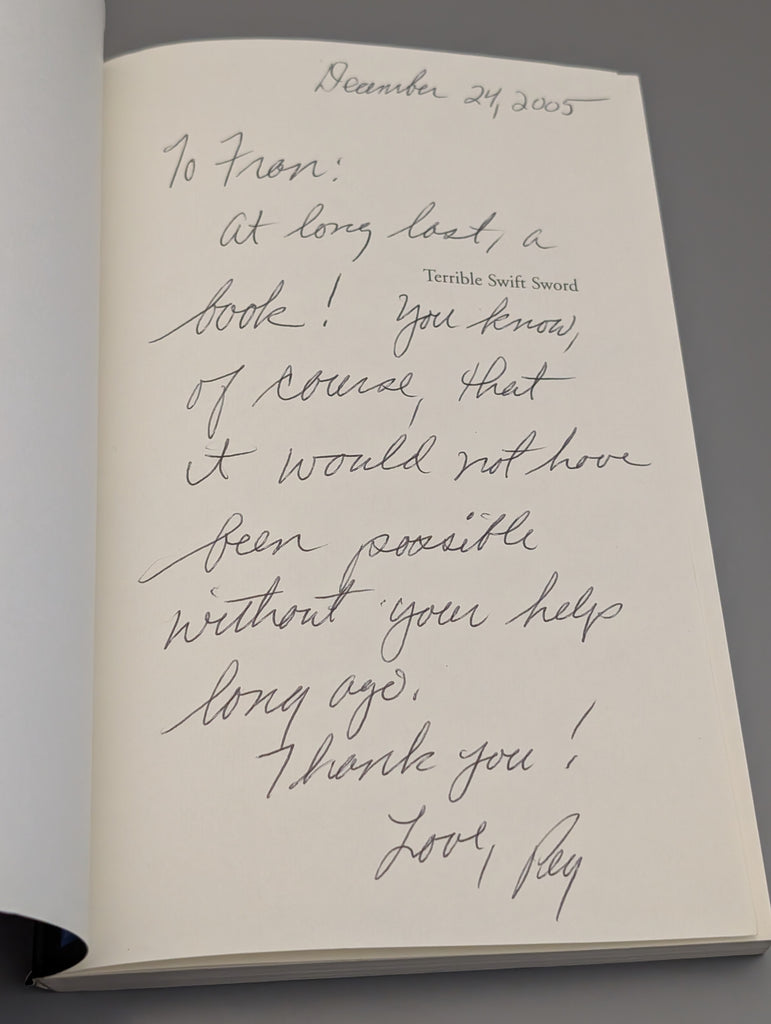 December 24, 2005
To Fran:
At long last, a
Terrible Swift Sword
book! You know,
of course, that
it would not have
been possible
without your help
long ago.
Thank you!
Love, Peg